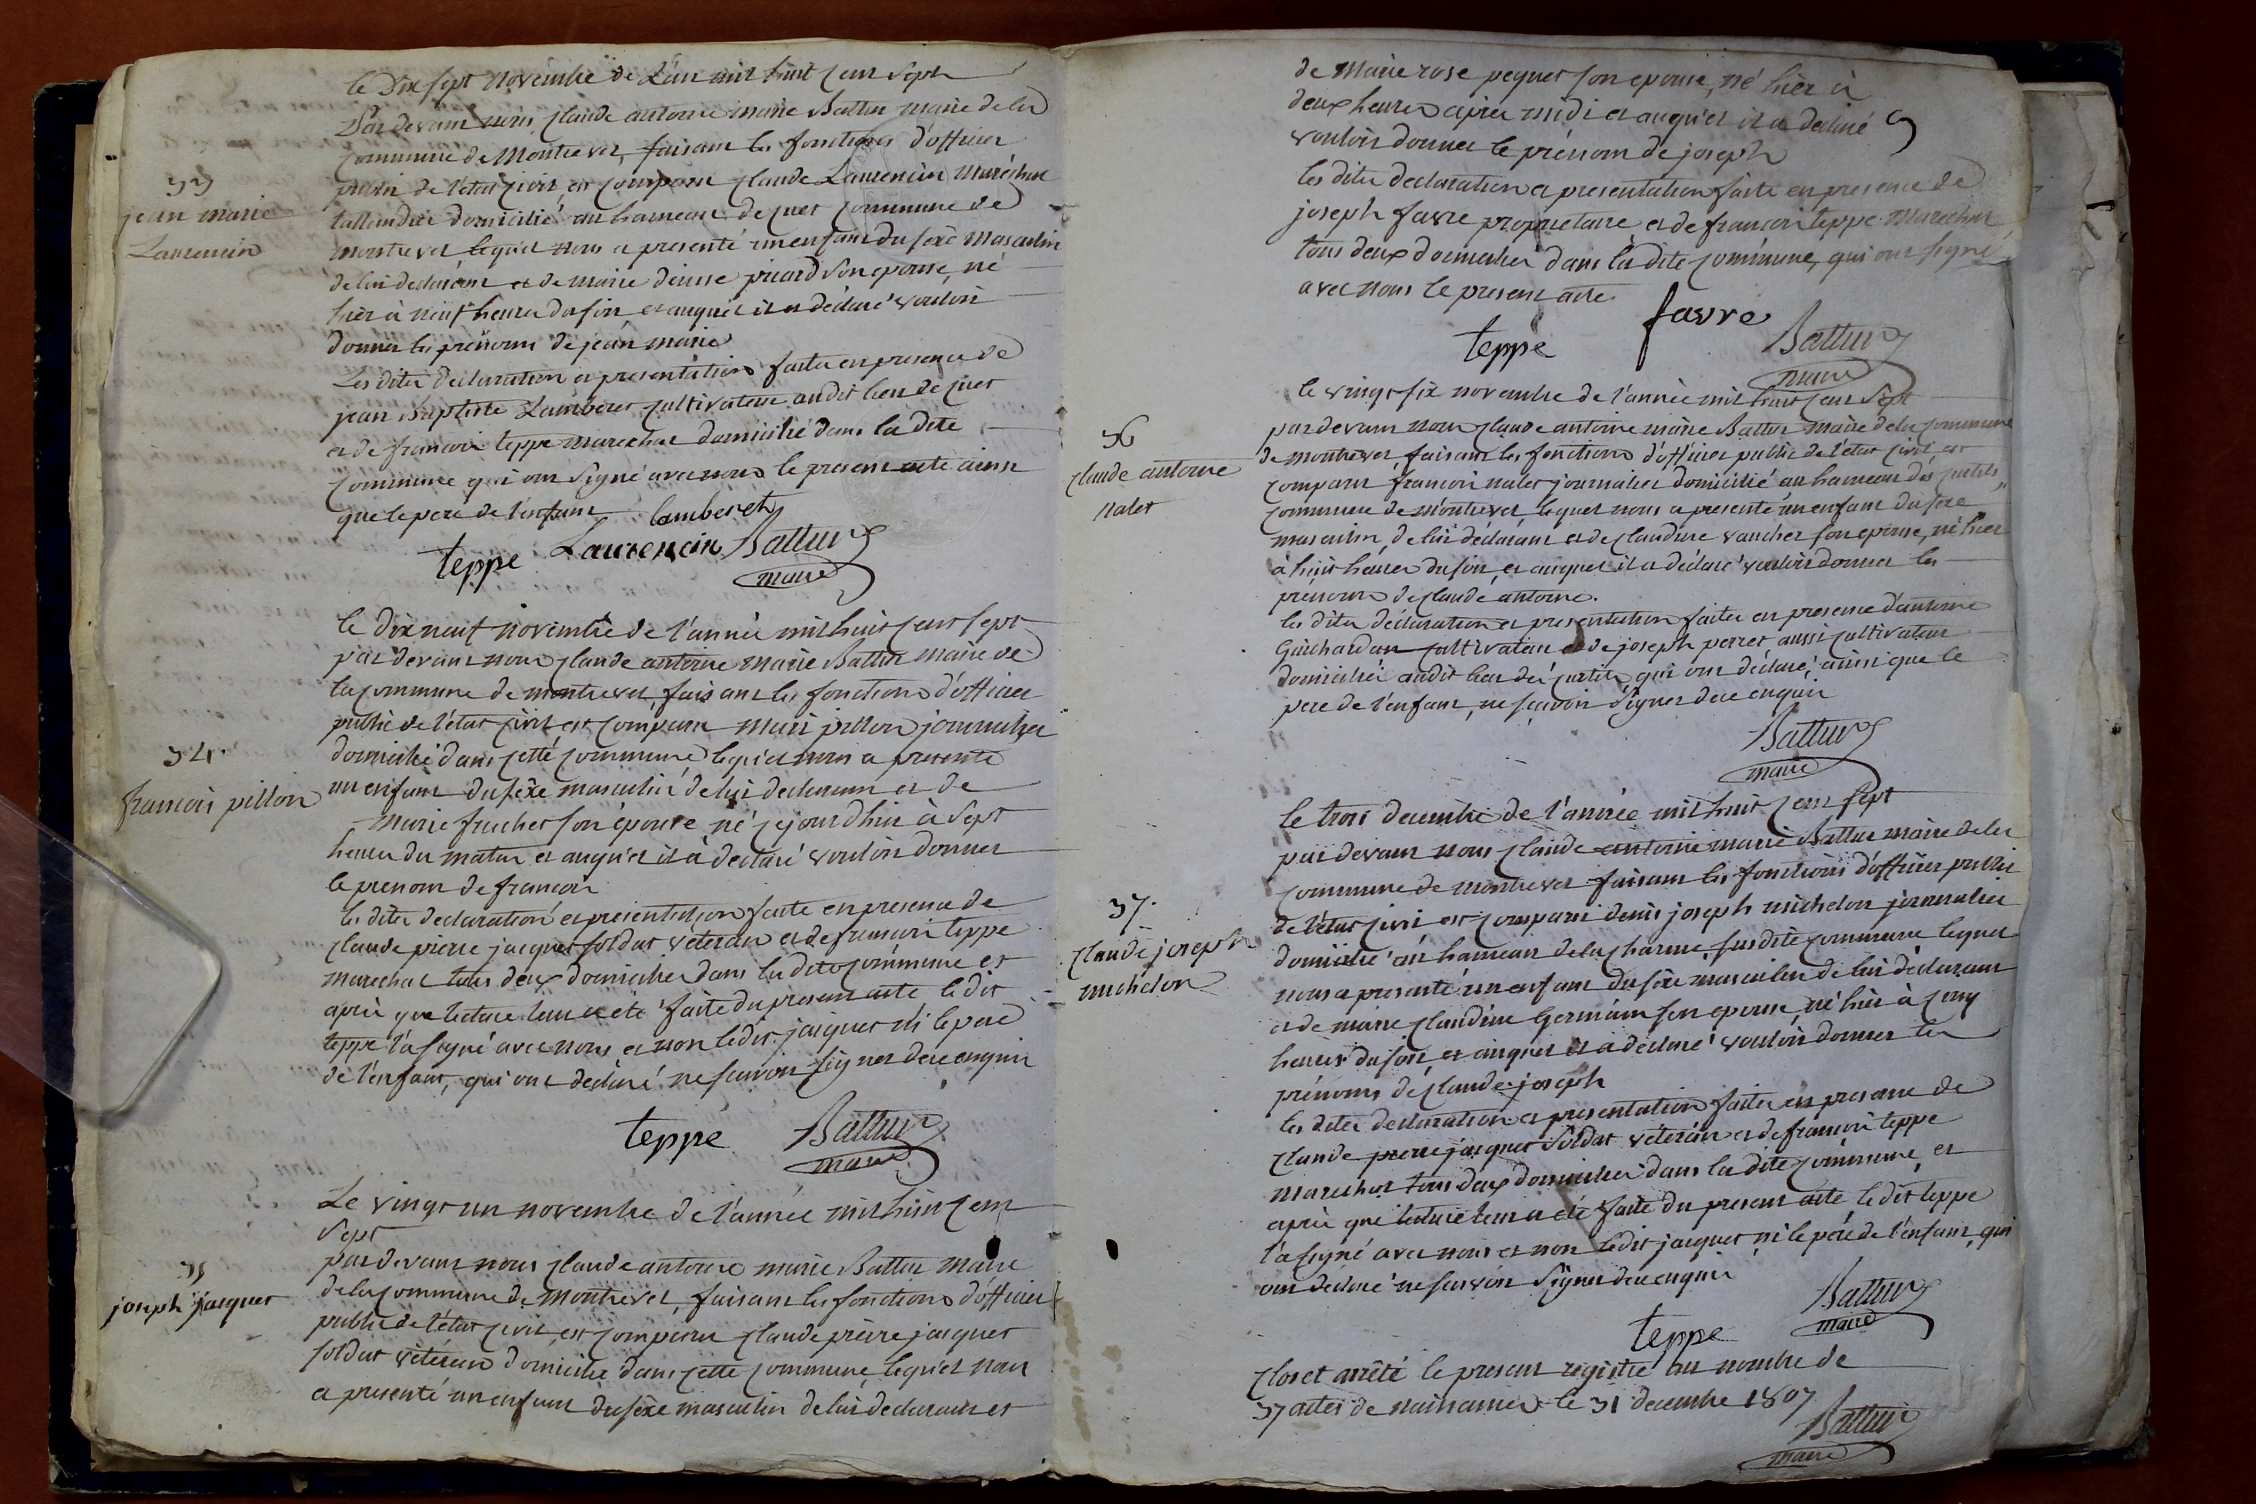 le Dix sept novembre de l'an mil huit cent sept
Par devant nous Claude antoine marie Battur maire de la
commune de Montrevel, faisant les fonctions d'officier
public de l'état civil est comparu Claude Laurencin Maréchal
33
jean marie
Laurencin
taillandier domicilié au hameau de Cuet commune de
montrevel lequel nous a presenté un enfant du sexe masculin
de lui declarant et de marie denise picard son epouse, né
hier à neuf heures du soir et auquel il a déclaré vouloir
donner les prénoms de jean marie
Les dites declaration et presentation faites en presence de
jean Baptiste Lamberet cultivateur audit lieu de Cuet
et de francois teppe marechal domicilié dans la dite
commune qui ont signé avec nous le present acte ainsi
que le pere de l'enfant lamberet
teppe Laurencin Battur
maire
le dix neuf novembre de l'année mil huit cent sept
par devant nous Claude antoine marie Battur maire de
la commune de montrevel, faisant les fonctions d'officier
public de l'état civil est comparu marie pillon journalier
34
francois pillon
domicilié dans cette commune lequel nous a presenté
un enfant du sexe masculin de lui declarant et de
marie fruchet son épouse né cejourdhui à sept
heures du matin et auquel il à déclaré vouloir donner
le prenom de francois
les dites declaration et presentation faite en presence de
Claude pierre jacquet soldat vétéran et de francois teppe
marechal tous deux domiciliés dans la dite commune et
après que lecture leur a eté faite du present acte, le dit
teppe l'a signé avec nous et non ledit jacquet ni le pere
de l'enfant, qui ont declaré ne scavoir signer de ce enquis
teppe Battur
maire
Le vingt un novembre de l'année mil huit cent
sept
35
joseph jacquet
par devant nous Claude antoine marie Battur maire
de la commune de Montrevel, faisant les fonctions d'officier
public de l'état civil, est comparu Claude pierre jacquet
soldat vétéran domicilié dans cette commune, lequel nous
a presenté un enfant du sexe masculin de lui declarant et
de Marie rose pequet son epouse, né hier à
deux heures après midi et auquel il a declaré
vouloir donner le prénom de joseph
les dites declaration et presentation faite en presence de
joseph favre proprietaire et de francois teppe Marechal
tous deux domiciliés dans la dite commune, qui ont signé
avec nous le present acte
favre
teppe Battur
maire
le vingt six novembre de l'année mil huit cent sept
36
Claude antoine
nalet
par devant nous Claude antoine marie Battur maire de la commune
de montrevel, faisant les fonctions d'officier public de l'état civil est
comparu francois nalet journalier domicilié au hameau des curtils
commune de montrevel lequel nous a presenté un enfant du sexe
masculin, de lui déclarant et de claudine vancher son epouse, né hier
à huit heures du soir, et auquel il a déclaré vouloir donner les
prénoms de Claude antoine.
les dites déclaration et presentation faites en presence d'antoine
Guichardan cultivateur et de joseph perret aussi cultivateur
domiciliés audit lieu des curtils, qui ont déclaré, ainsi que le
pere de l'enfant, ne scavoir signer de ce enquis
Battur
maire
le trois decembre de l'année mil huit cent sept
37.
Claude joseph
michelon
par devant nous Claude antoine marie Battur maire de la
commune de montrevel faisant les fonctions d'officier public
de l'état civil est comparu denis joseph michelon journalier
domicilié au hameau de la charme, susdite commune lequel
nous a presenté un enfant du sexe masculin de lui déclarant
et de marie Claudine Germain son epouse, né hier à cinq
heures du soir et auquel il a déclaré vouloir donner les
prénoms de Claude joseph
les dites declaration et presentation faites en presence de
Claude pierre jacquet soldat vétéran et de francois teppe
marechal tous deux domiciliés dans la dite commune, et
après que lecture leur a été faite du present acte, le dit teppe
l'a signé avec nous et non ledit jacquet ni le pere de l'enfant, qui
ont declaré ne scavoir signer de ce enquis
Battur
teppe maire
Clos et arrêté le present registre au nombre de
37 actes de naissances le 31 decembre 1807
Battur
maire